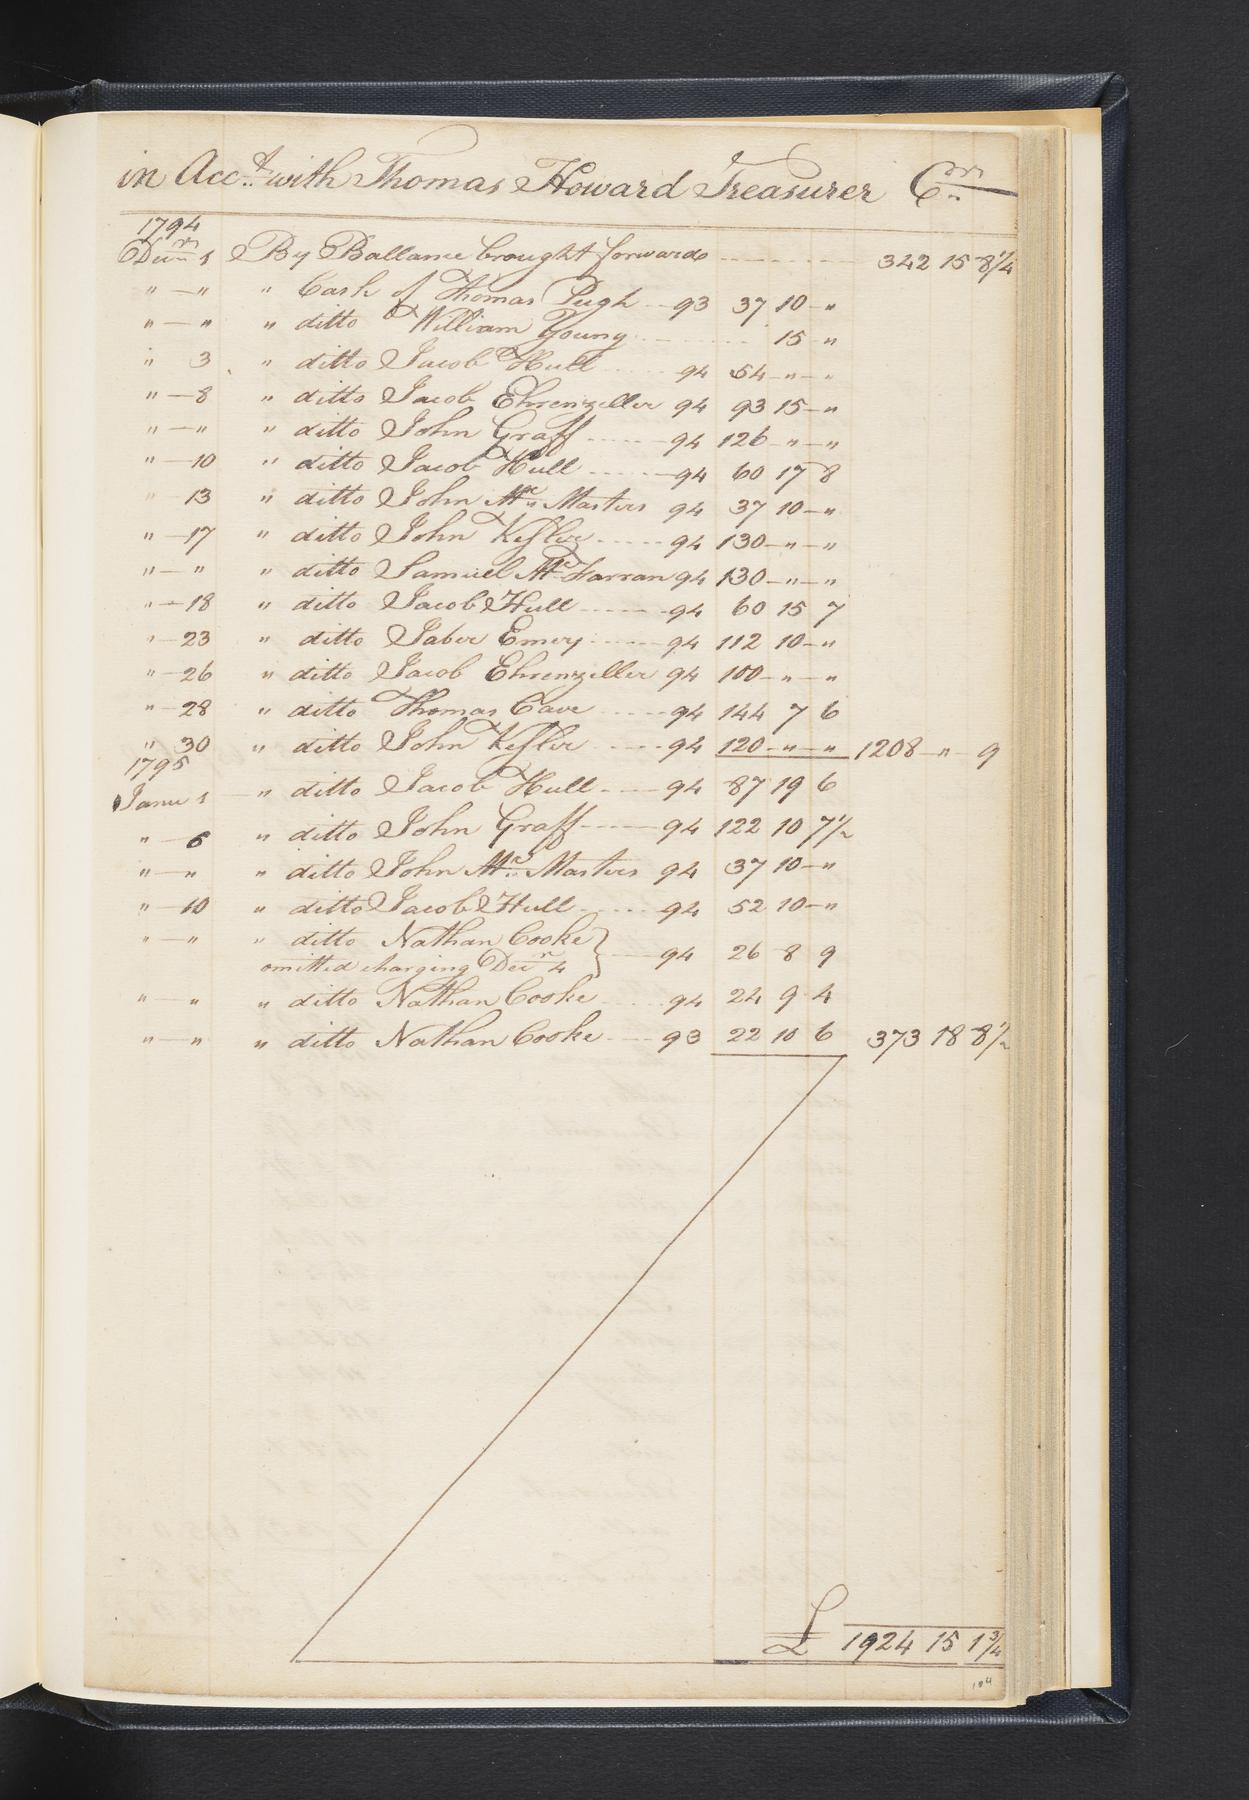 in Acc.t with Thomas Howard Treasurer Cr
1794
Decemr 1 By Ballance brought forwards 342 15 8 1/4
" — " " Cash of Thomas Pugh 93 37 10 — "
" — " " ditto William Young 15 — "
" 3 " ditto Jacob Hull 94 54 — " — "
" — 8 " ditto Jacob Ehrenzeller 94 93 15 — "
" — " " ditto John Graff 94 126 — " — "
" — 10 " ditto Jacob Hull 94 60 17 8
" 13 " ditto John Mc Masters 94 37 10 — "
" — 17 " ditto John Kessler 94 130 — " — "
" — " " ditto Samuel Mc Farran 94 130 — " — "
" — 18 " ditto Jacob Hull 94 60 15 7
" — 23 " ditto Jaber Emery 94 112 10 — "
" — 26 " ditto Jacob Ehrenzeller 94 100 — " — "
" — 28 " ditto Thomas Cave 94 144 7 6
" 30 " ditto John Kessler 94 120 — " — " 1208 — " — 9
1795
Janu 1 — " ditto Jacob Hull 94 87 19 6
" — 6 " ditto John Graff 94 122 10 7 1/2
" — " " ditto John Mc Masters 94 37 10 — "
" — 10 " ditto Jacob Hull 94 52 10 — "
" — " " ditto Nathan Cooke } 94 26 8 9
omitted charging Decr 4
" — " " ditto Nathan Cooke 94 24 9 4
" — " " ditto Nathan Cooke 93 22 10 6 373 18 8 1/2
£ 1924 15 1 3/4
104